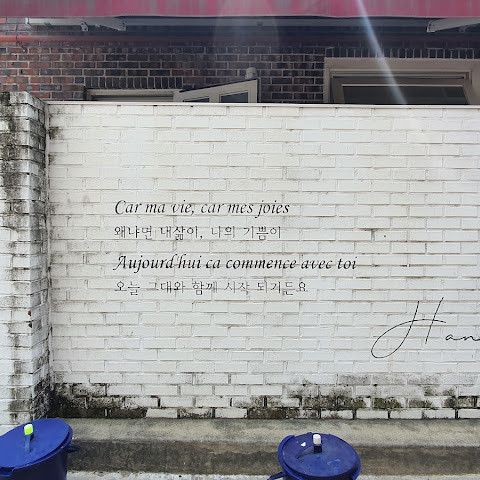 Car ma vie, car mes joies
왜냐면 내삶이, 나의 기쁨이
Aujourd'hui ca commence avec toi
오늘 그대와 함께 시작 되거든요